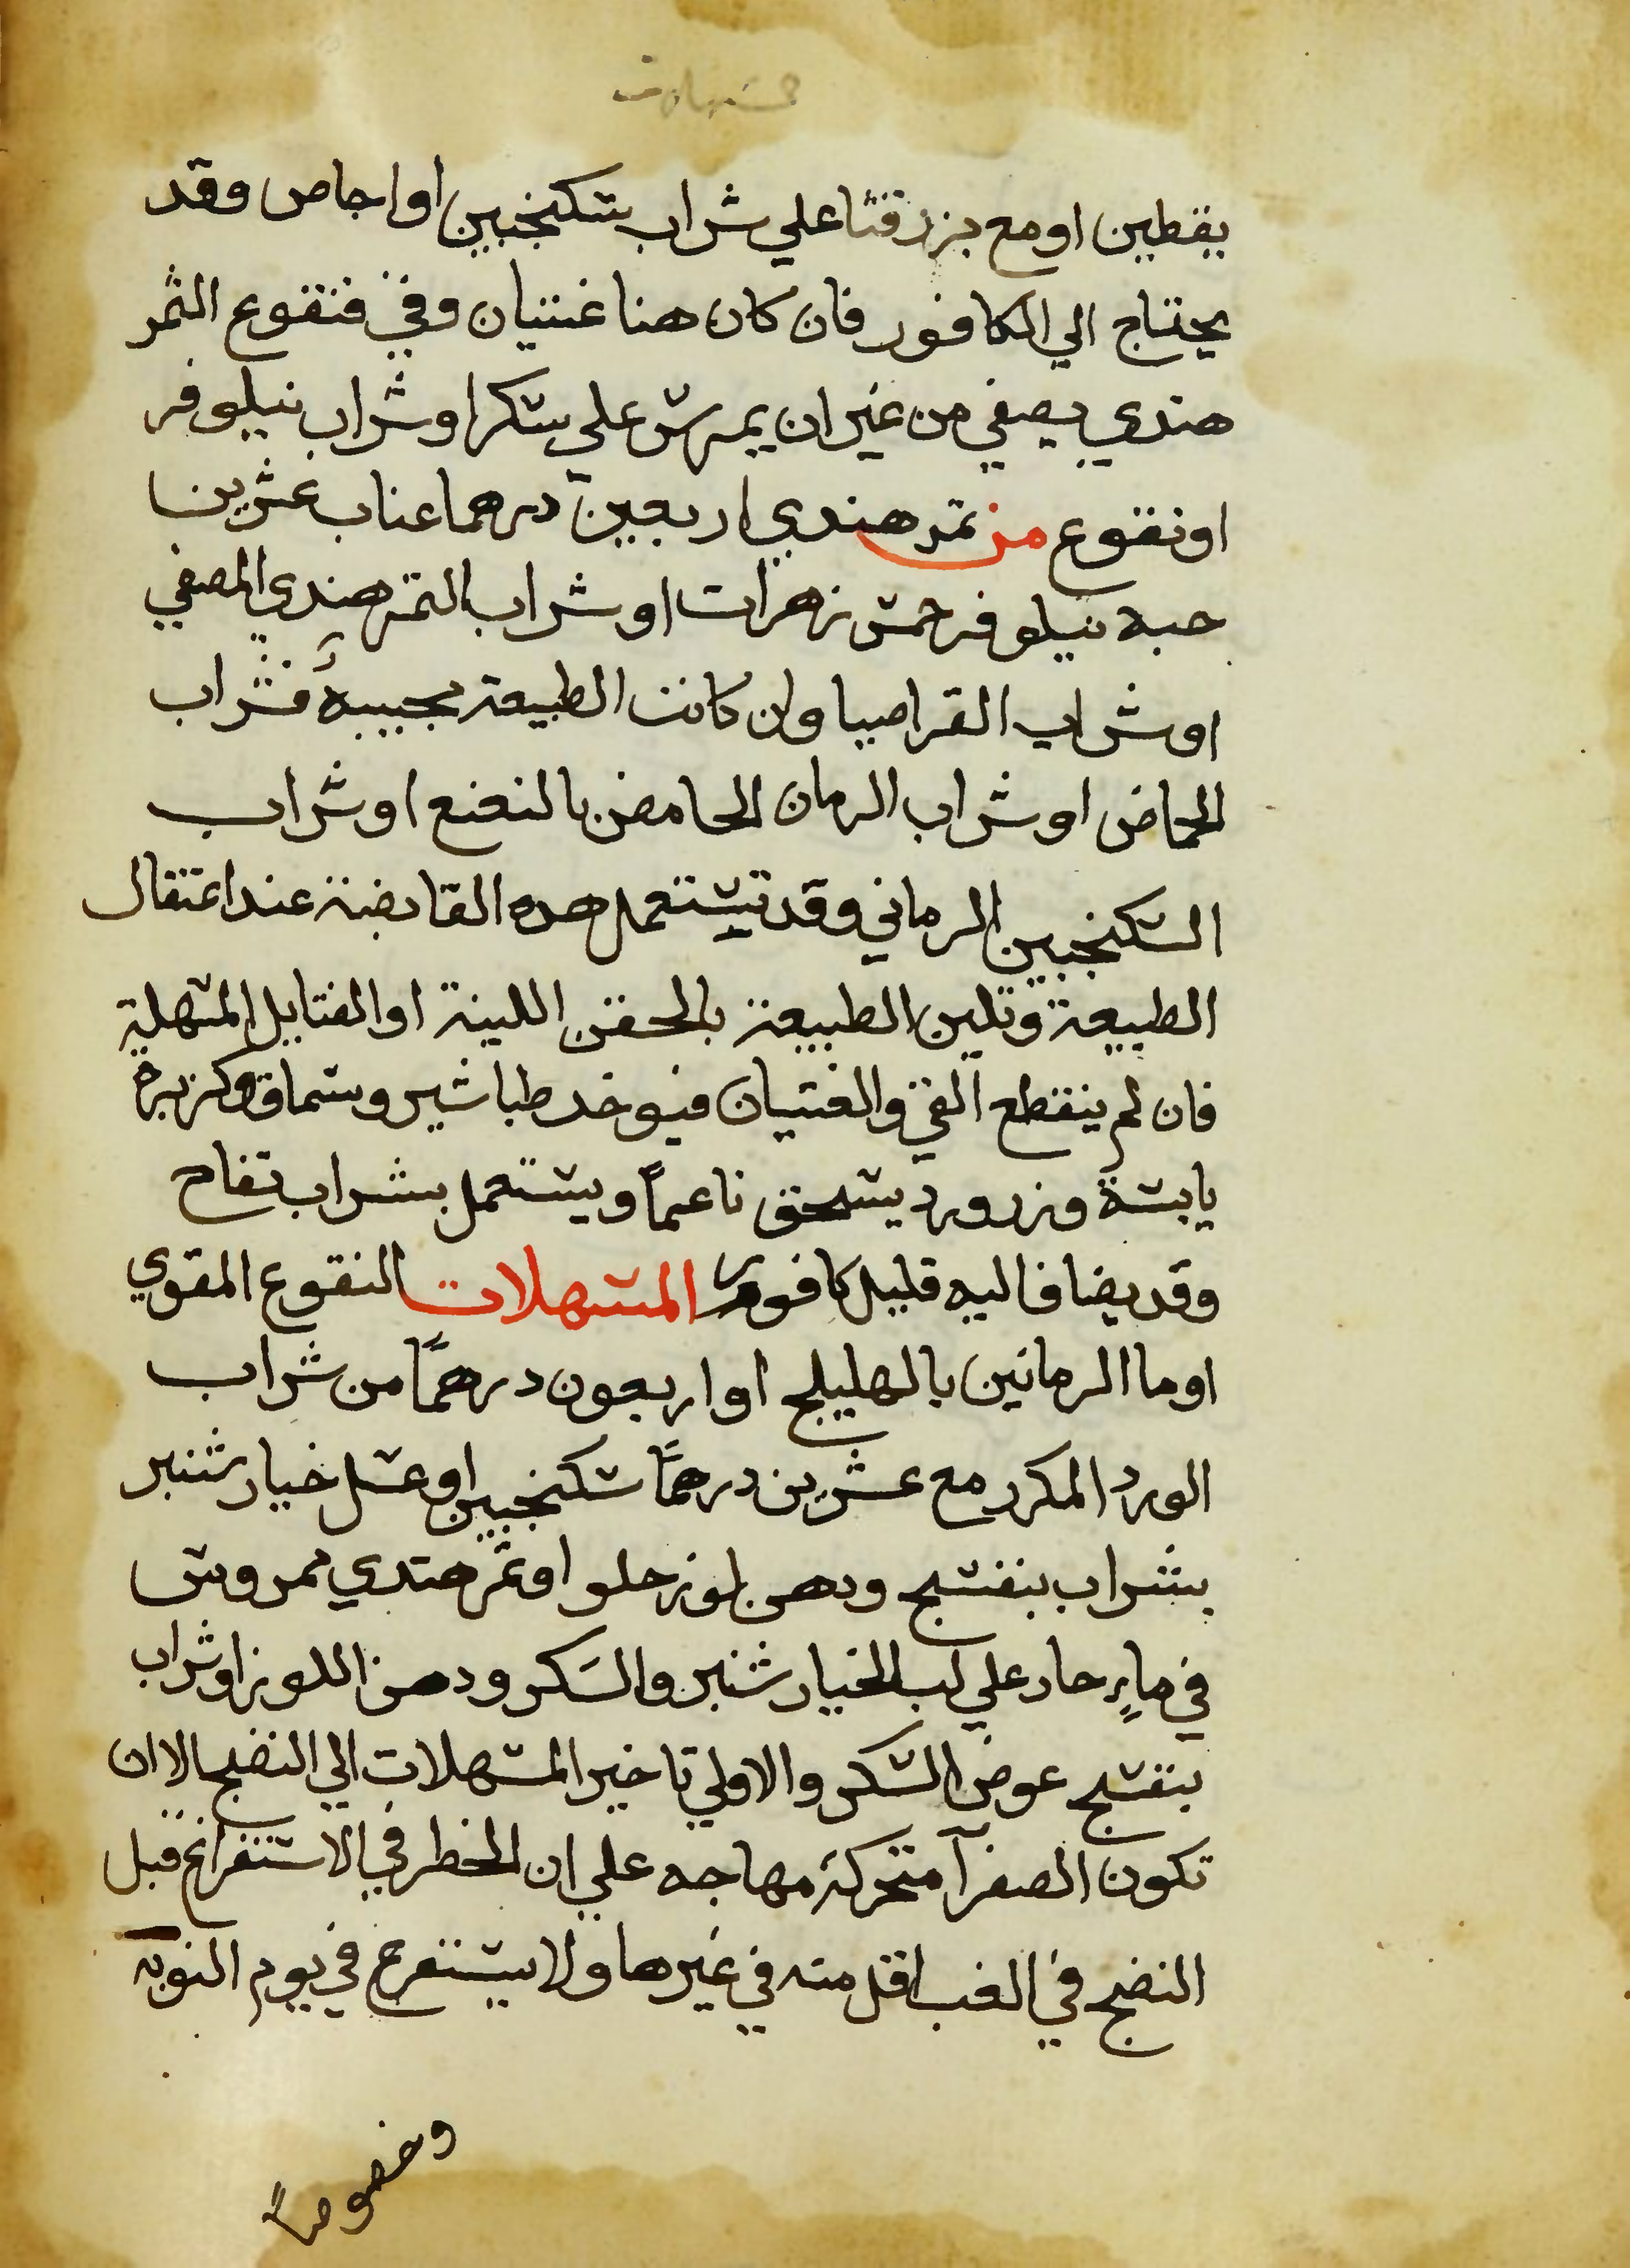 مسهلات
يقطين او مع بزر قثا علي شراب سكنجبين او اجاص وقد
يحتاج الي الكافور فان كان هنا غثيان وقي فنقوع التمر
هندي يصفي من غير ان يمرس علي سكر او شراب نيلوفر
او نقوع من تمر هندي اربعين درهما عناب عشرين
حبه نيلوفر خمس زهرات او شراب التمر هندي المصفي
او شراب القراصيا وان كانت الطبيعة مجيبة فشراب
الحماض او شراب الرمان الحامض بالنعنع او شراب
السكنجبين الرماني وقد تستعمل هده القابضة عند اعتقال
الطبيعة وتلين الطبيعة بالحقن اللينة او الفتايل المسهلة
فان لم ينقطع القي والغثيان فيوخد طباشير وسماق وكزبرة
يابسة وزرورد يسحق ناعماً ويستعمل بشراب تفاح
وقد يضاف اليه قليل كافور المسهلات النقوع المقوي
او ما الرمانين بالهليلج او اربعون درهماً من شراب
الورد المكرر مع عشرين درهماً سكنجبين او عسل خيار شنبر
بشراب بنفسج ودهن لوز حلو او تمر هندي ممروس
في ماءٍ حار علي لب الخيار شنبر والسكر ودهن اللوز او شراب
بنفسج عوض السكر والاولي تاخير المسهلات الي النضج الا ان
تكون الصفرآ متحركة مهاجه علي ان الخطر في الاستفراغ قبل
النضج في الغب اقل منه في غيرها ولا يستفرغ في يوم النوبة
وخصوصاً